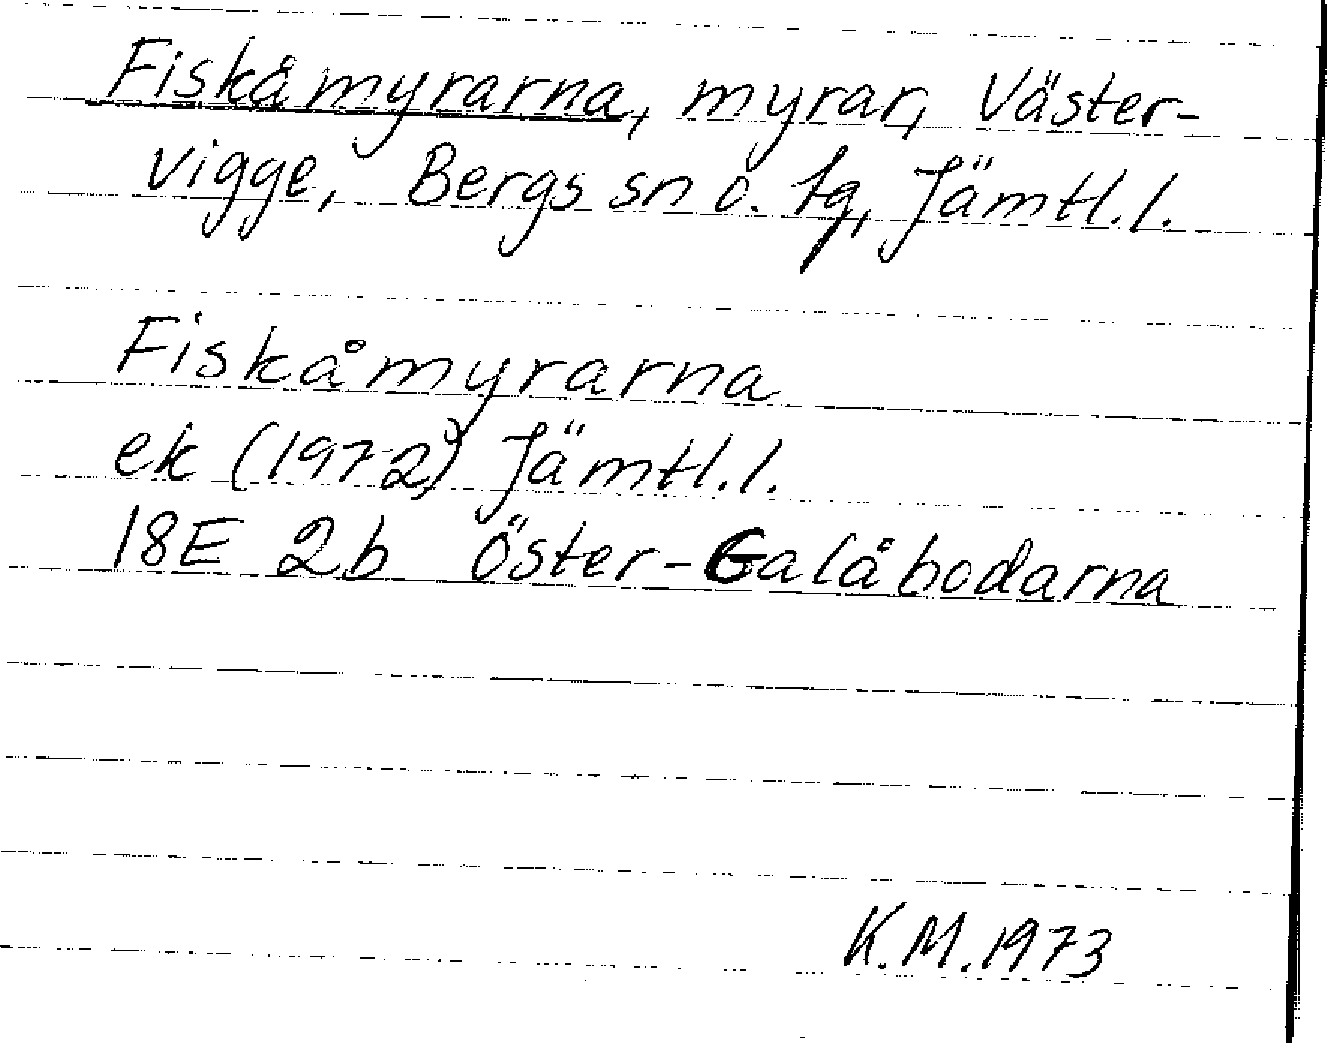 Fiskåmyrarna, myrar, Väster-
vigge, Bergs sn o. tg, Jämtl.l.
Fiskåmyrarna
ek (1972) Jämtl.l.
18E 2b Öster-Galåbodarna
K.M.1973